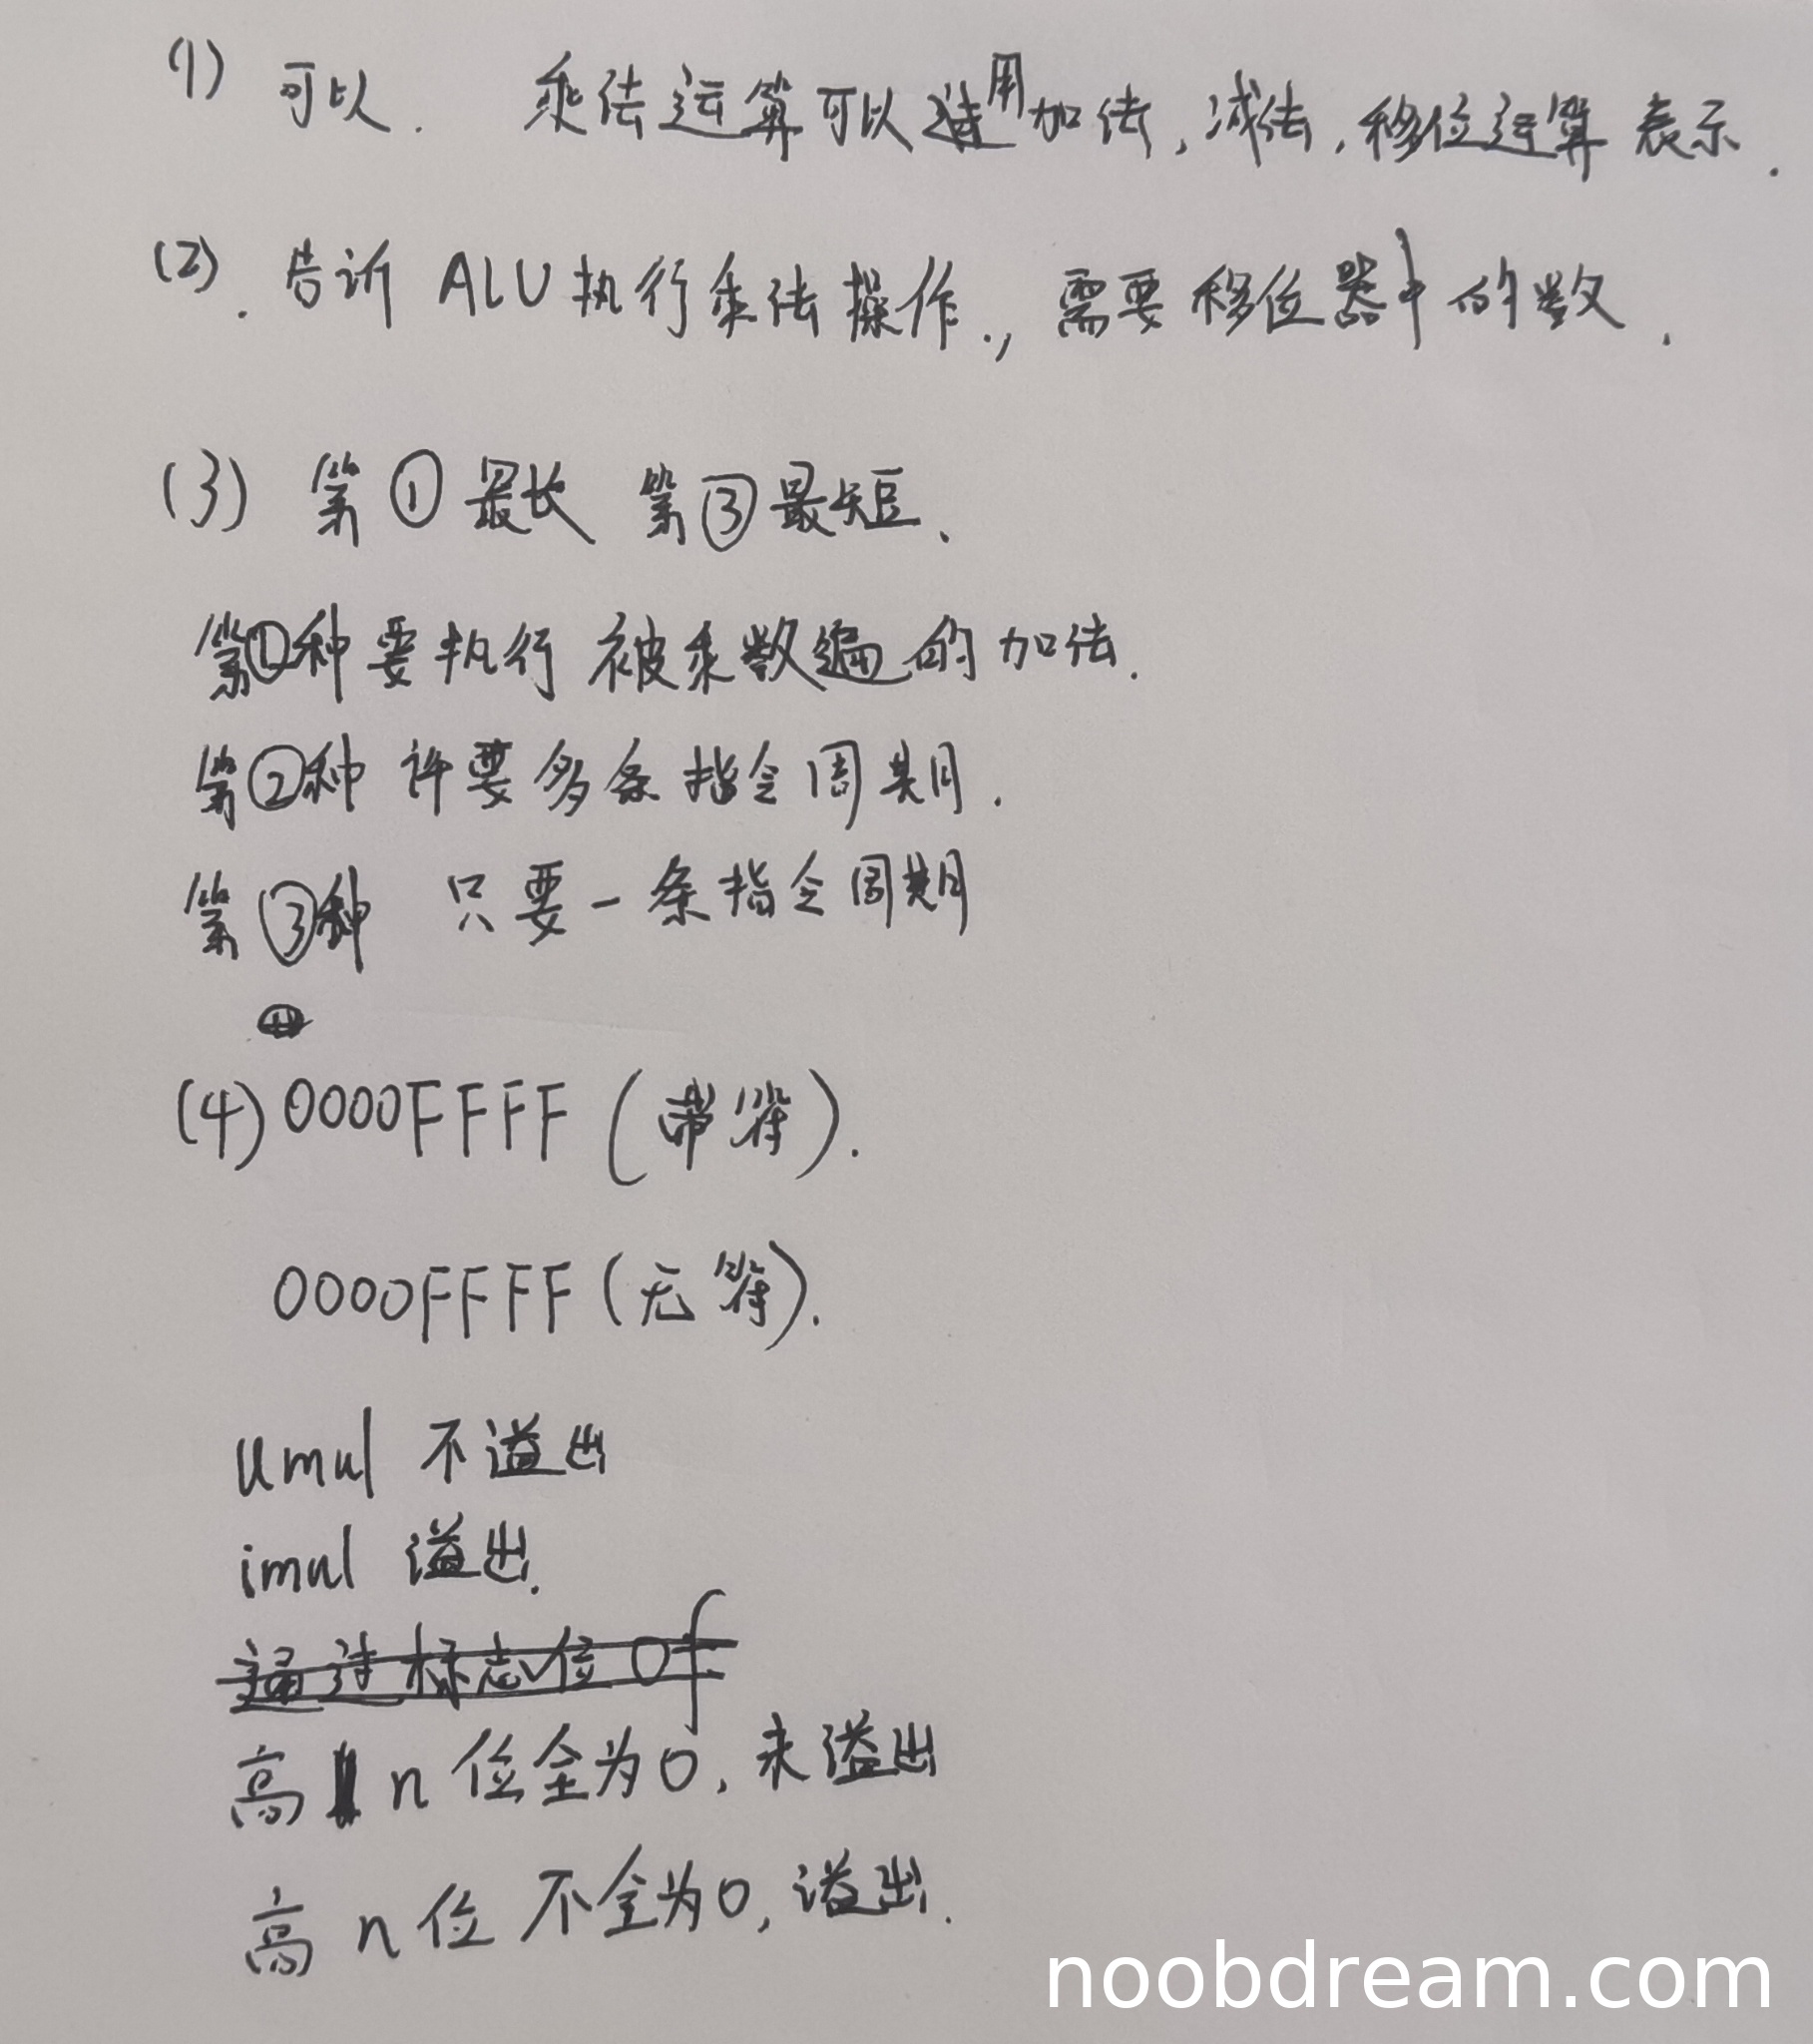 (1) 可以. 乘法运算可以用加法,减法,移位运算表示.
(2). 告诉ALU执行乘法操作.,需要移位器中的数.
(3) 第①最长 第③最短.
第①种要执行被乘数遍的加法.
第②种 许要多条指令周期.
第③种 只要一条指令周期
(4) 0000FFFF (带符).
0000FFFF (无符).
umul 不溢出
imul 溢出.
通过标志位Of
高n位全为0,未溢出
高n位不全为0,溢出.
noobdream.com